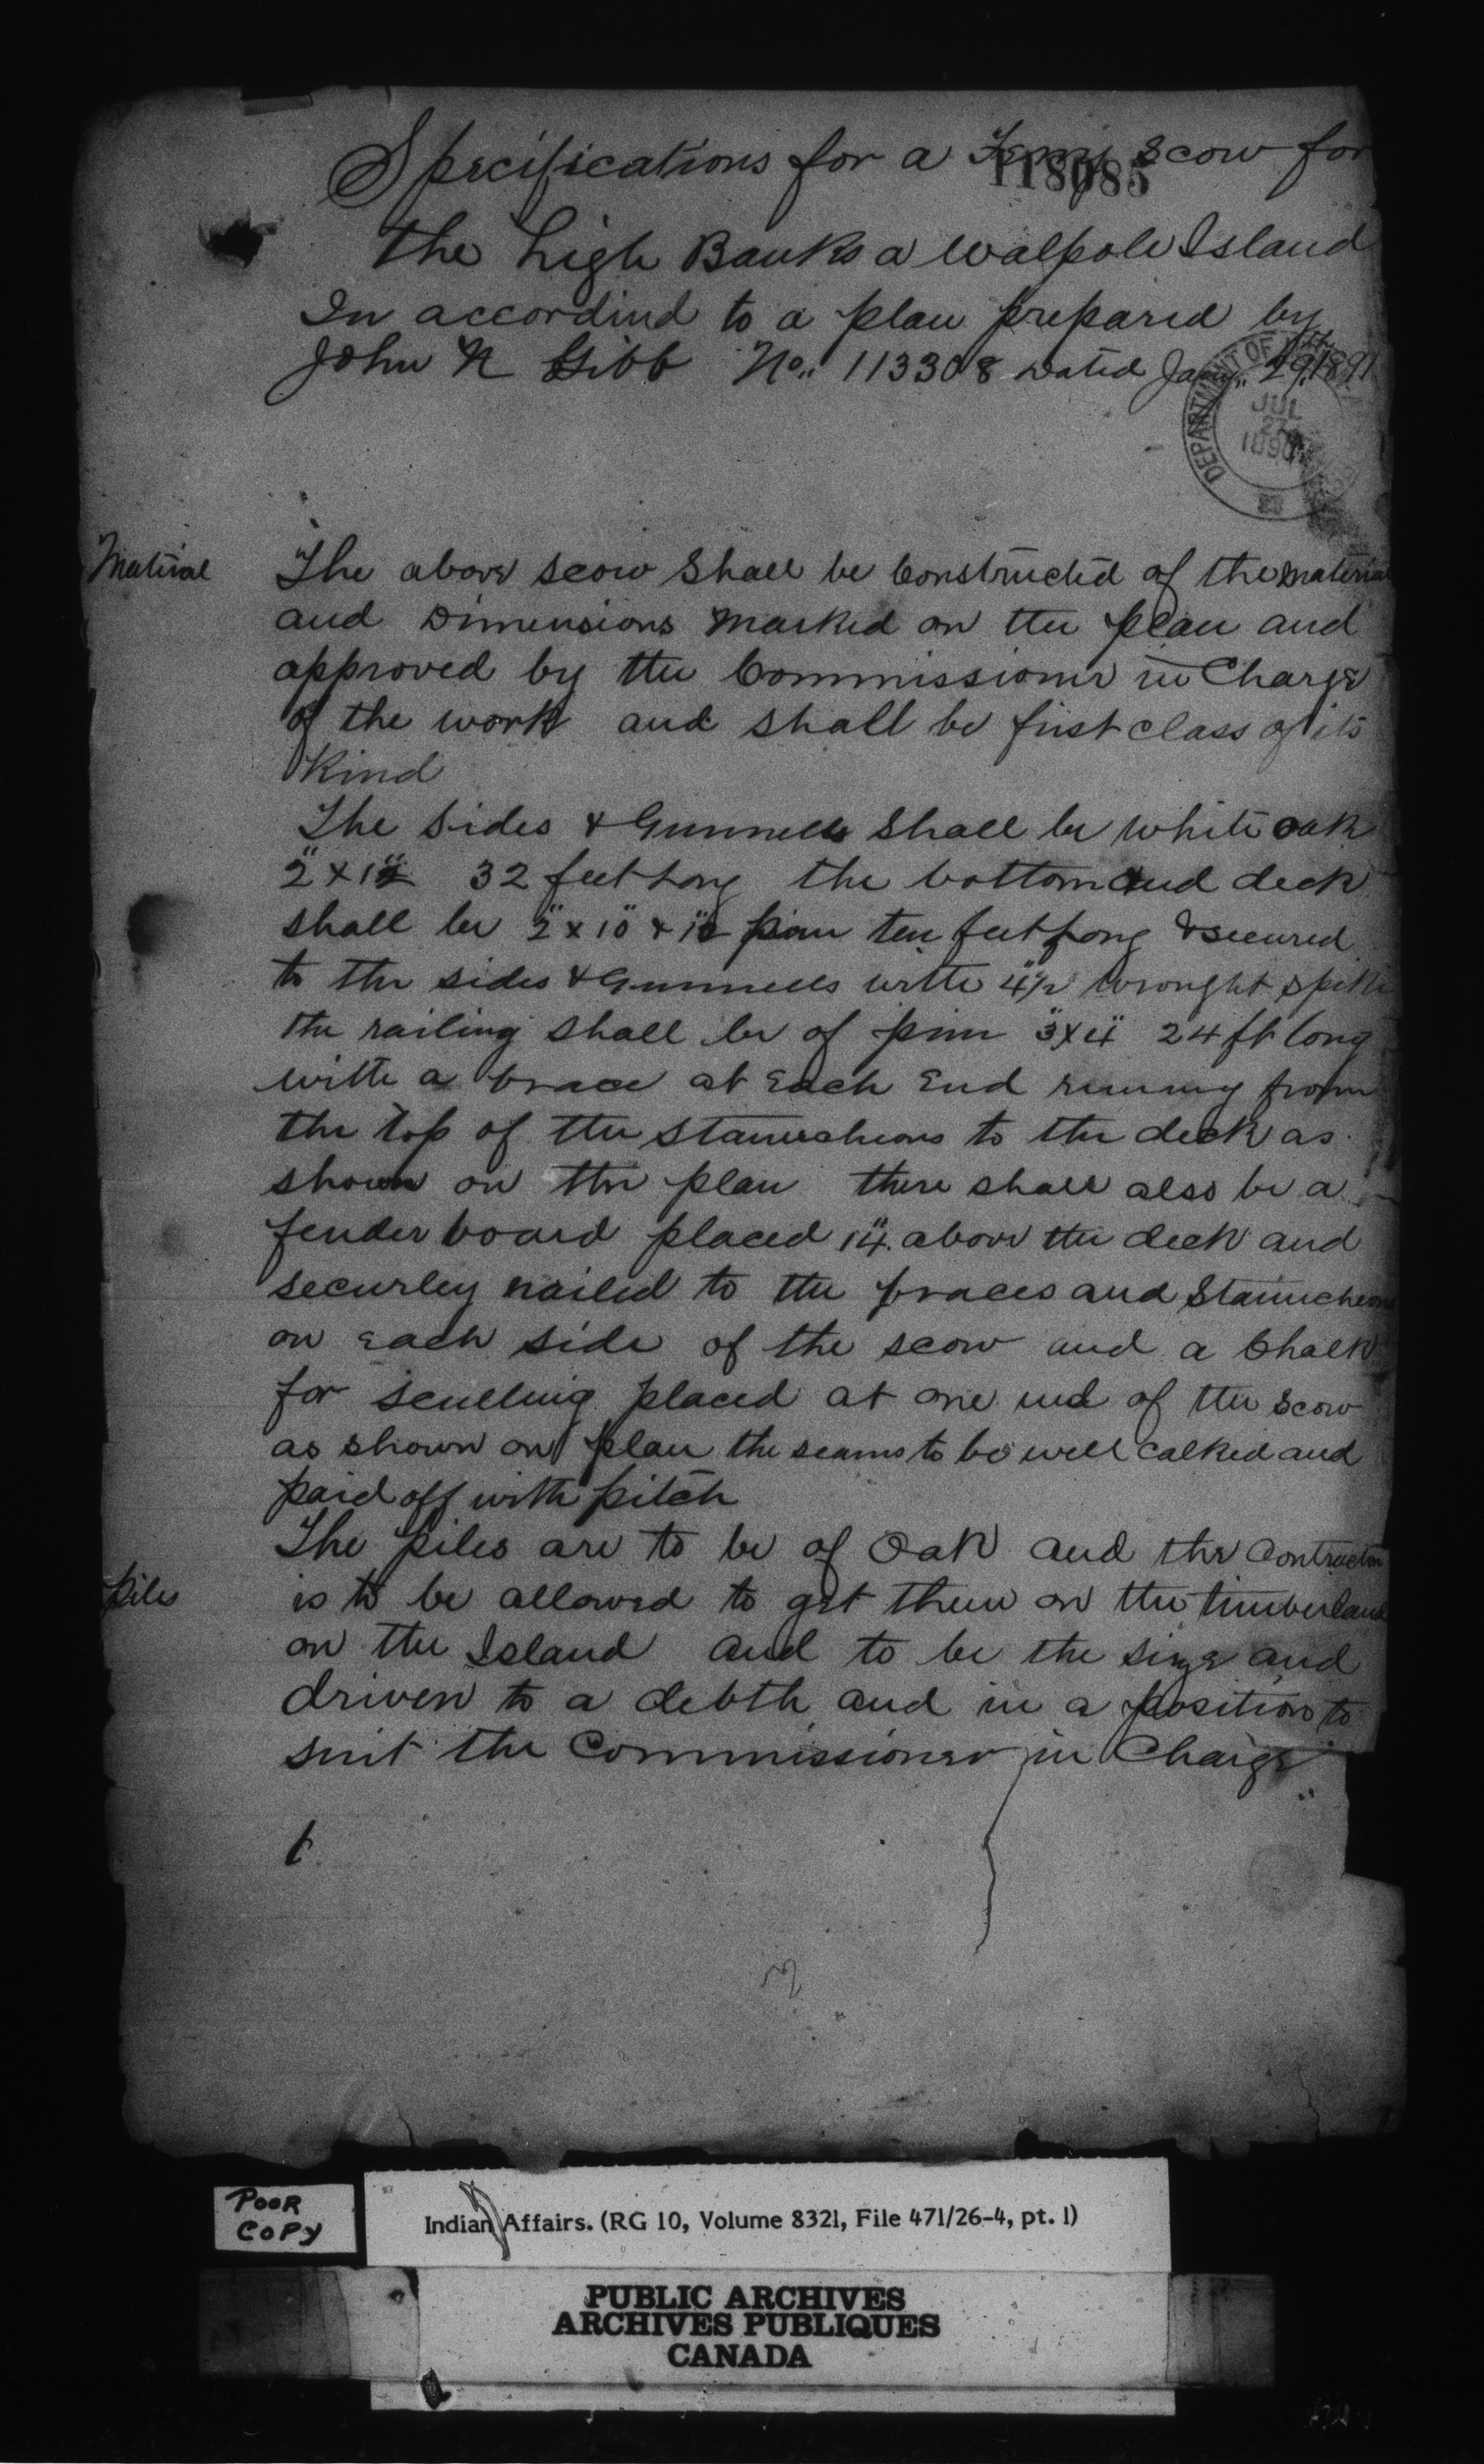 Specifications for a Ferry Scow for
118085
the high Banks a Walpole Island
In accordind to a plan prepared by
John N Gibb No,, 113308 Dated Jany,, 29, 1891
DEPARTMENT OF
JUL
27
1890
Matirial
The above scow Shall be Constructed of the material
and Dimensions Marked on the plan and
approved by the Commissioner in Charge
of the work and shall be first class of its
Kind
The Sides & Gunnells Shall be white oak
2" x 12" 32 feet long the bottom and deck
shall be 2" x 10" & 12" pine ten feet long & secured
to the sides & Gunnells with 4 1/2" wrought spike
the railing shall be of pine 3" x 4" 24 ft long
with a brace at Each End running from
the top of the Staunchions to the deck as
shown on the plan there shall also be a
fender board placed 14" above the deck and
securley nailed to the braces and Staunchions
on Each side of the scow and a Chalk
for sculling placed at one end of the Scow
as shown on plan the seams to be well calked and
paid off with pitch
piles
The piles are to be of Oak and the Contractor
is to be allowed to get them on the timberland
on the Island and to be the size and
driven to a debth and in a position to
suit the Commissioner in Charge
POOR
COPY
Indian Affairs. (RG 10, Volume 8321, File 471/26-4, pt. 1)
PUBLIC ARCHIVES
ARCHIVES PUBLIQUES
CANADA